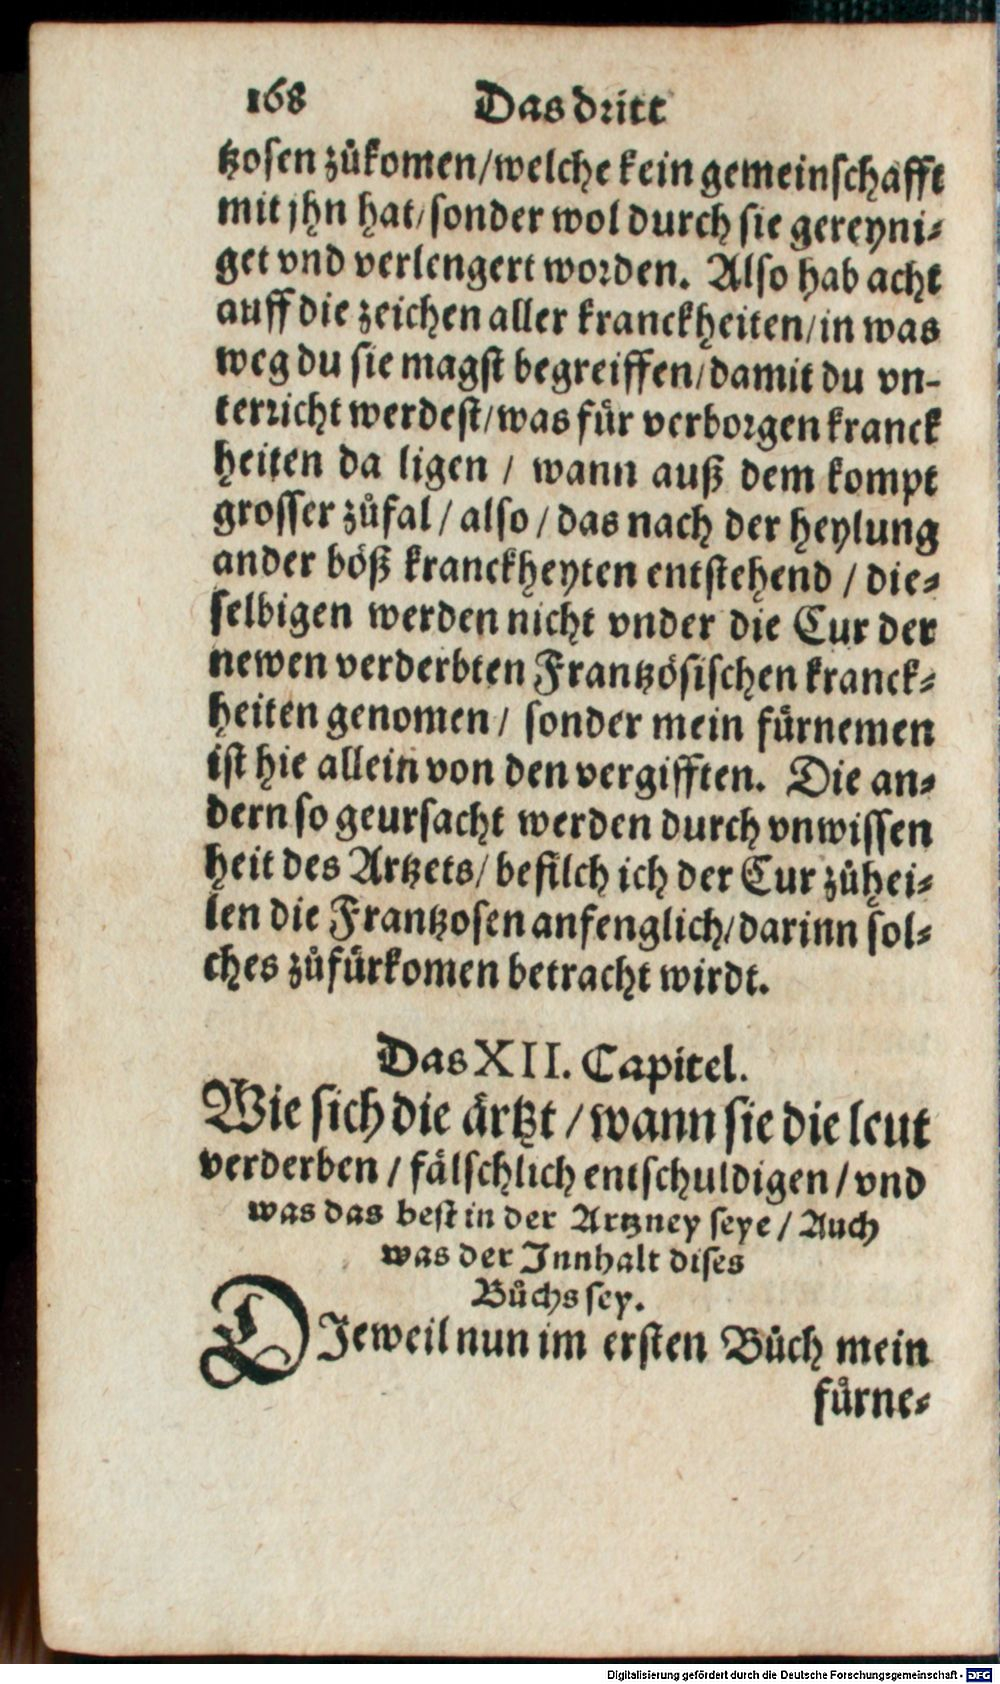 168 Das dritt
tzosen zůkomen/welche kein gemeinschafft
mit jhn hat/sonder wol durch sie gereyni-
get vnd verlengert worden. Also hab acht
auff die zeichen aller kranckheiten/in was
weg du sie magst begreiffen/damit du vn-
terricht werdest/was für verborgen kranck
heiten da ligen / wann auß dem kompt
grosser zůfal / also / das nach der heylung
ander böß kranckheyten entstehend / die-
selbigen werden nicht vnder die Cur der
newen verderbten Frantzösischen kranck-
heiten genomen / sonder mein fürnemen
ist hie allein von den vergifften. Die an-
dern so geursacht werden durch vnwissen
heit des Artzets/ befilch ich der Cur zůhei-
len die Frantzosen anfenglich/darinn sol-
ches zůfürkomen betracht wirdt.
Das XII. Capitel.
Wie sich die ärtzt / wann sie die leut
verderben / fälschlich entschuldigen / vnd
was das best in der Artzney seye / Auch
was der Innhalt dises
Bůchs sey.
DJeweil nun im ersten Bůch mein
fürne-
Digitalisierung gefördert durch die Deutsche Forschungsgemeinschaft - DFG